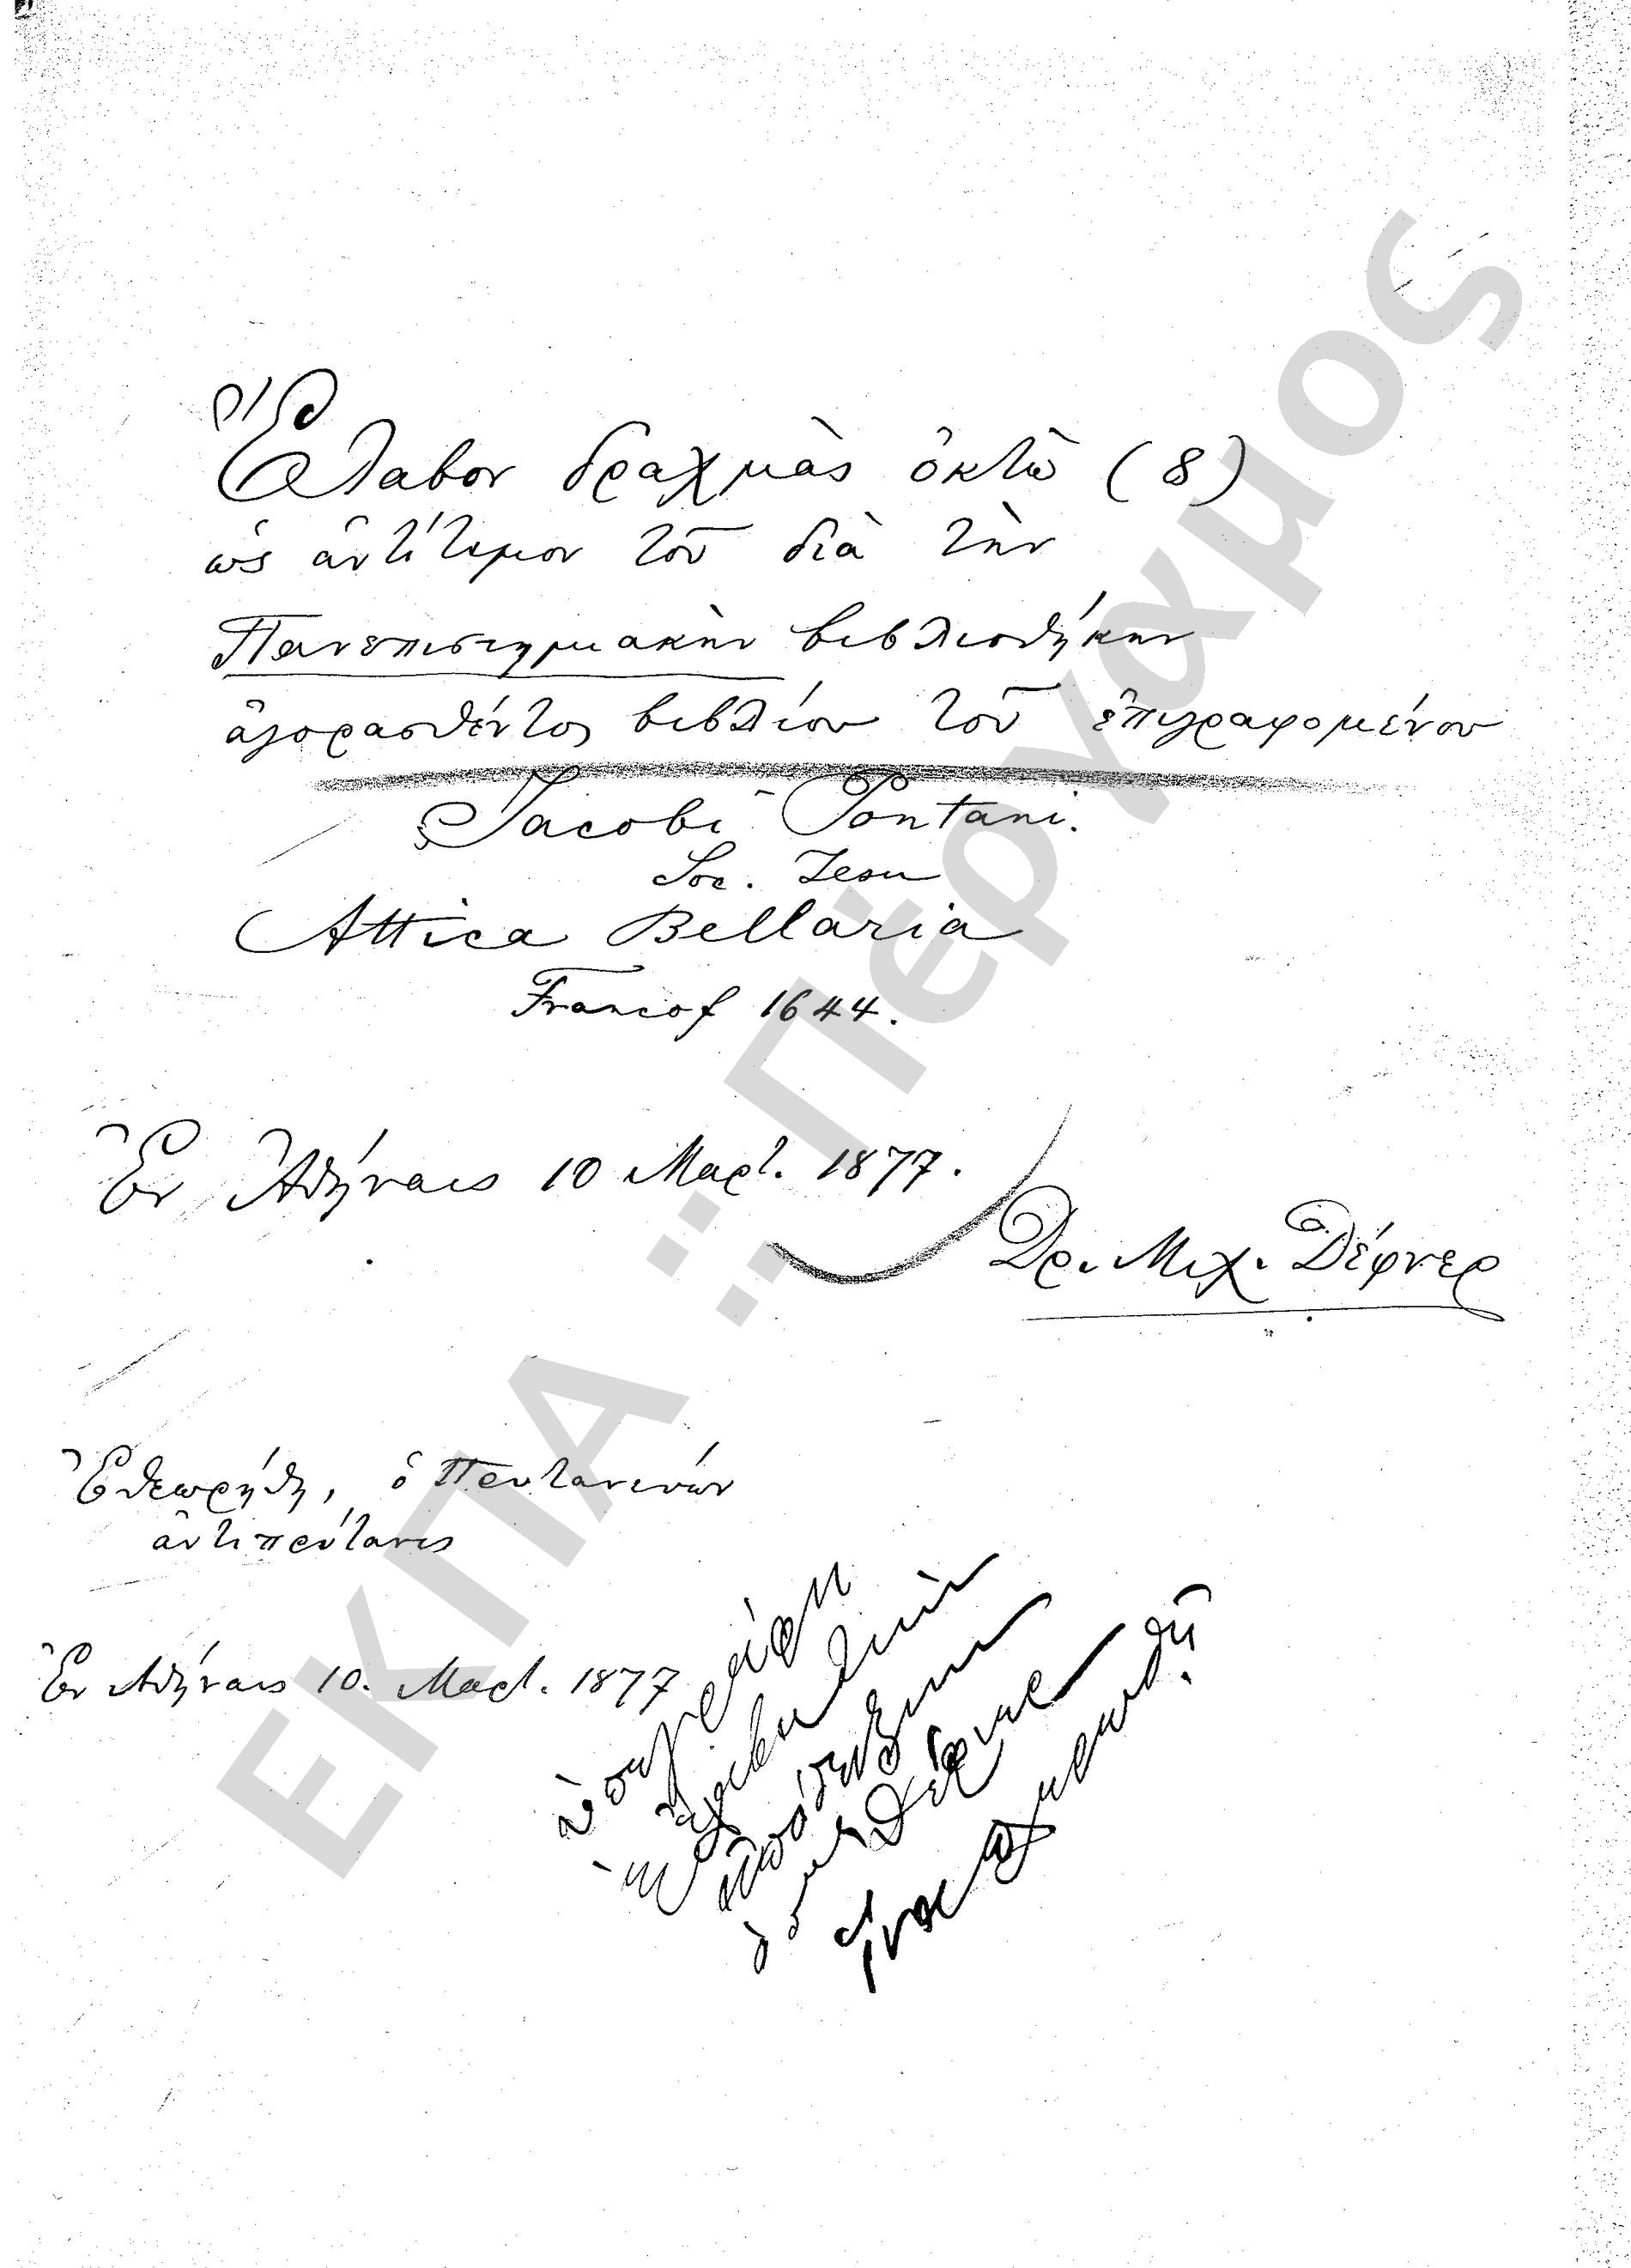 Ἔλαβον δραχμὰς ὀκτὼ (8)
ὡς ἀντίτιμον τοῦ διὰ τὴν
Πανεπιστημιακὴν βιβλιοθήκην
ἀγορασθέντος βιβλίου τοῦ ἐπιγραφομένου
Jacobi Pontani.
Soc. Jesu
Attica Bellaria
Francof 1644.
Ἐν Ἀθήναις 10 Μαρτ. 1877.
Δρ. Μιχ. Δέφνερ
Ἐθεωρήθη, ὁ Πρυτανεύων
ἀντιπρύτανις
Ἐν Ἀθήναις 10. Μαρτ. 1877
ἀπόδειξιν
ὁ κος Δέφνερ
ἵνα πληρωθῇ.
ΕΚΠΑ :: Πέργαμος